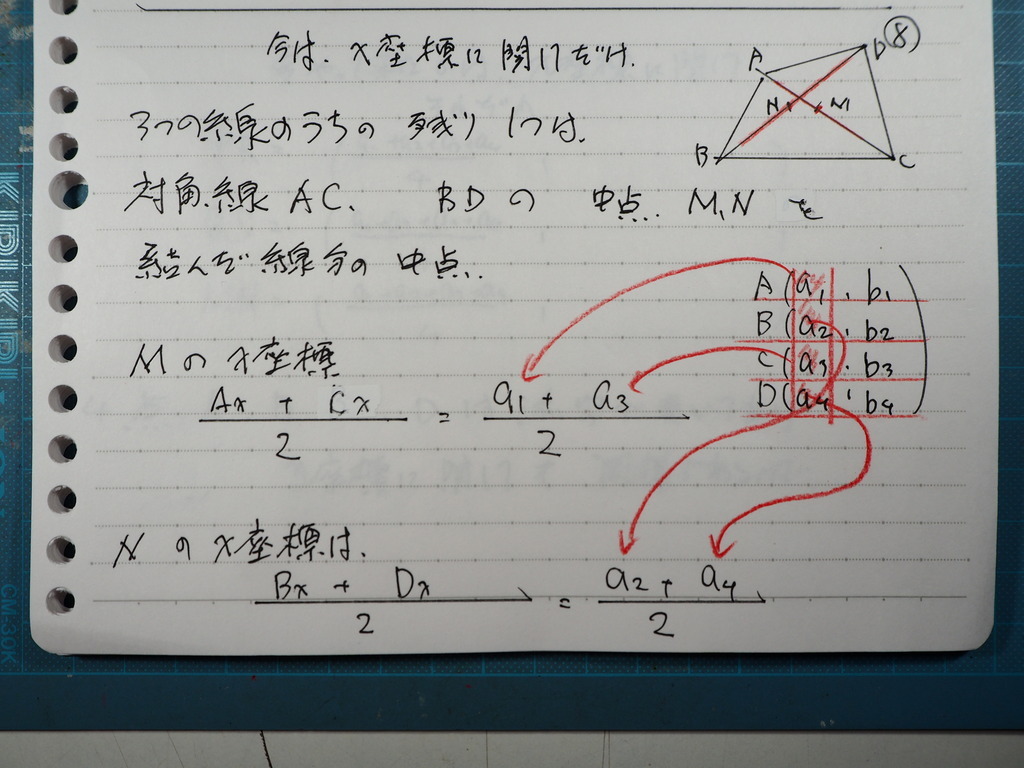 ⑧
今は、x座標に関してだけ.
A D
N M
B C
3つの線のうちの 残り 1つは、
対角線 AC、 BD の 中点 M,N を
結んだ線分の中点.
A(a1, b1)
B(a2, b2)
C(a3, b3)
D(a4, b4)
Mのx座標
Ax + Cx / 2 = a1 + a3 / 2
Nのx座標は、
Bx + Dx / 2 = a2 + a4 / 2
CM-30K